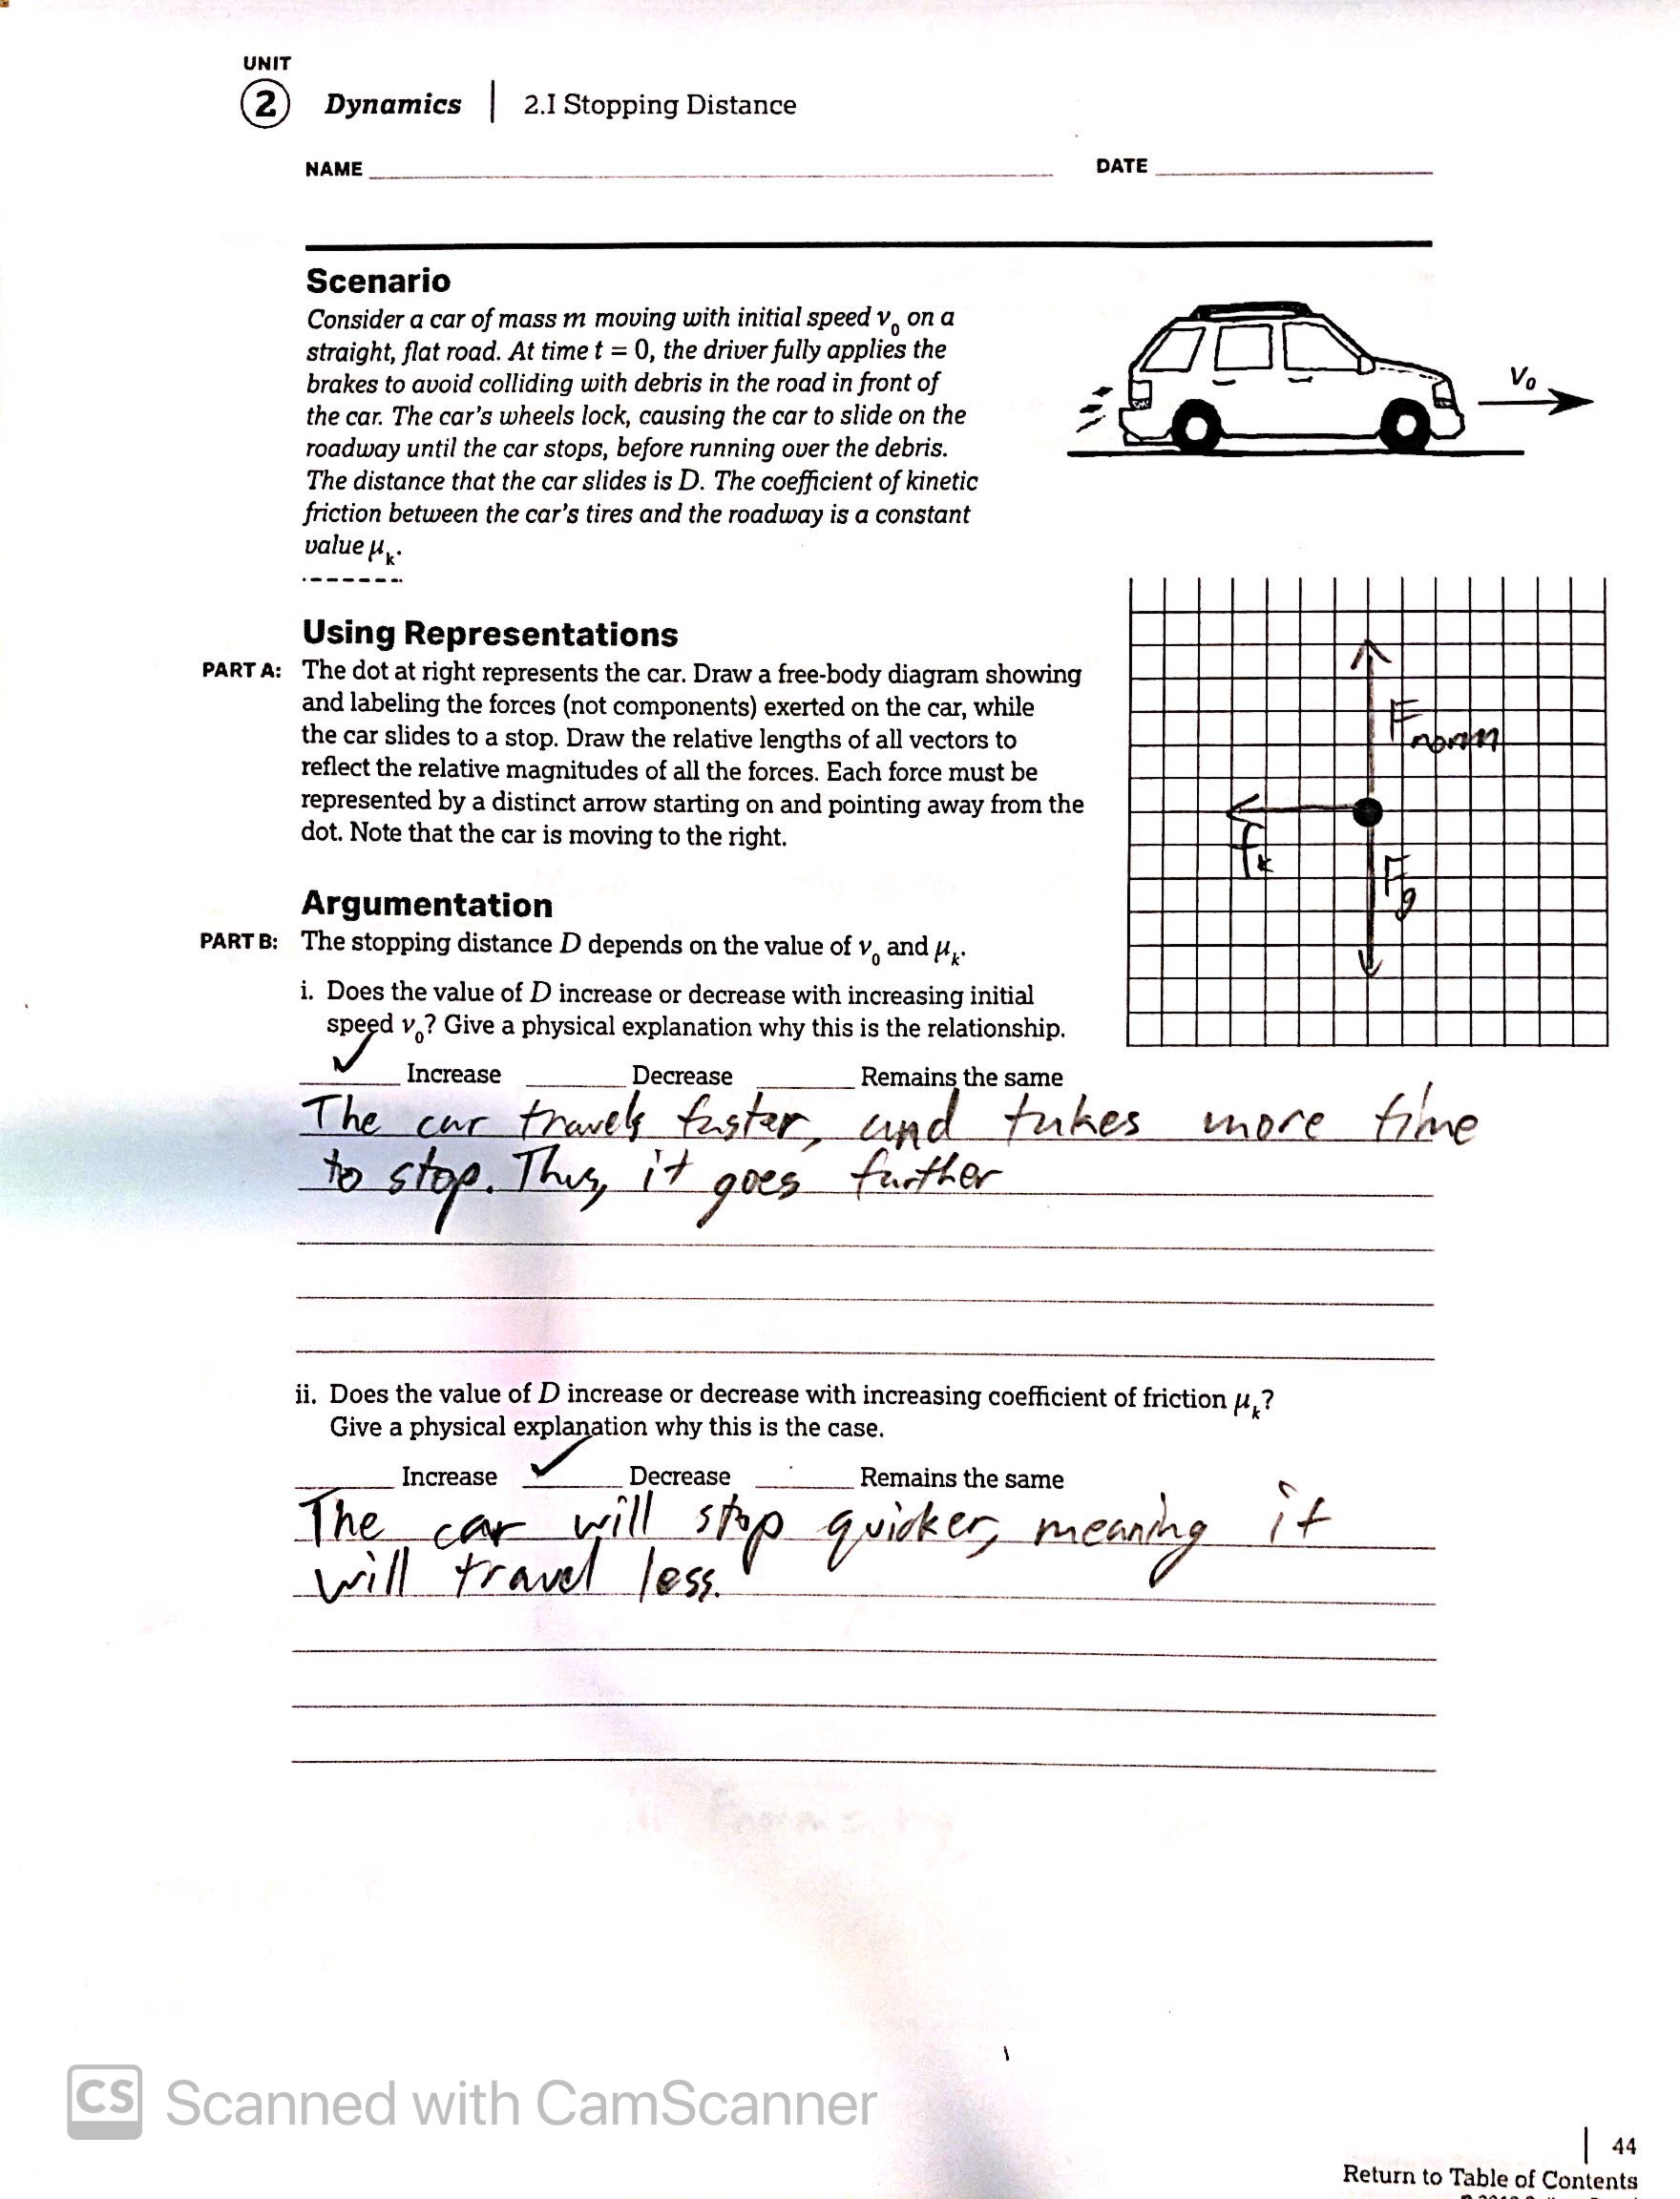 UNIT
2 Dynamics | 2.I Stopping Distance
NAME DATE
Scenario
Consider a car of mass m moving with initial speed v₀ on a
straight, flat road. At time t = 0, the driver fully applies the
brakes to avoid colliding with debris in the road in front of
the car. The car's wheels lock, causing the car to slide on the
roadway until the car stops, before running over the debris.
The distance that the car slides is D. The coefficient of kinetic
friction between the car's tires and the roadway is a constant
value μₖ.
v₀
Using Representations
PART A: The dot at right represents the car. Draw a free-body diagram showing
and labeling the forces (not components) exerted on the car, while
the car slides to a stop. Draw the relative lengths of all vectors to
reflect the relative magnitudes of all the forces. Each force must be
represented by a distinct arrow starting on and pointing away from the
dot. Note that the car is moving to the right.
Fnorm
fk
Fg
Argumentation
PART B: The stopping distance D depends on the value of v₀ and μₖ.
i. Does the value of D increase or decrease with increasing initial
speed v₀? Give a physical explanation why this is the relationship.
✓ Increase Decrease Remains the same
The car travels faster, and takes more time
to stop. Thus, it goes further
ii. Does the value of D increase or decrease with increasing coefficient of friction μₖ?
Give a physical explanation why this is the case.
Increase ✓ Decrease Remains the same
The car will stop quicker, meaning it
will travel less.
CS Scanned with CamScanner
| 44
Return to Table of Contents